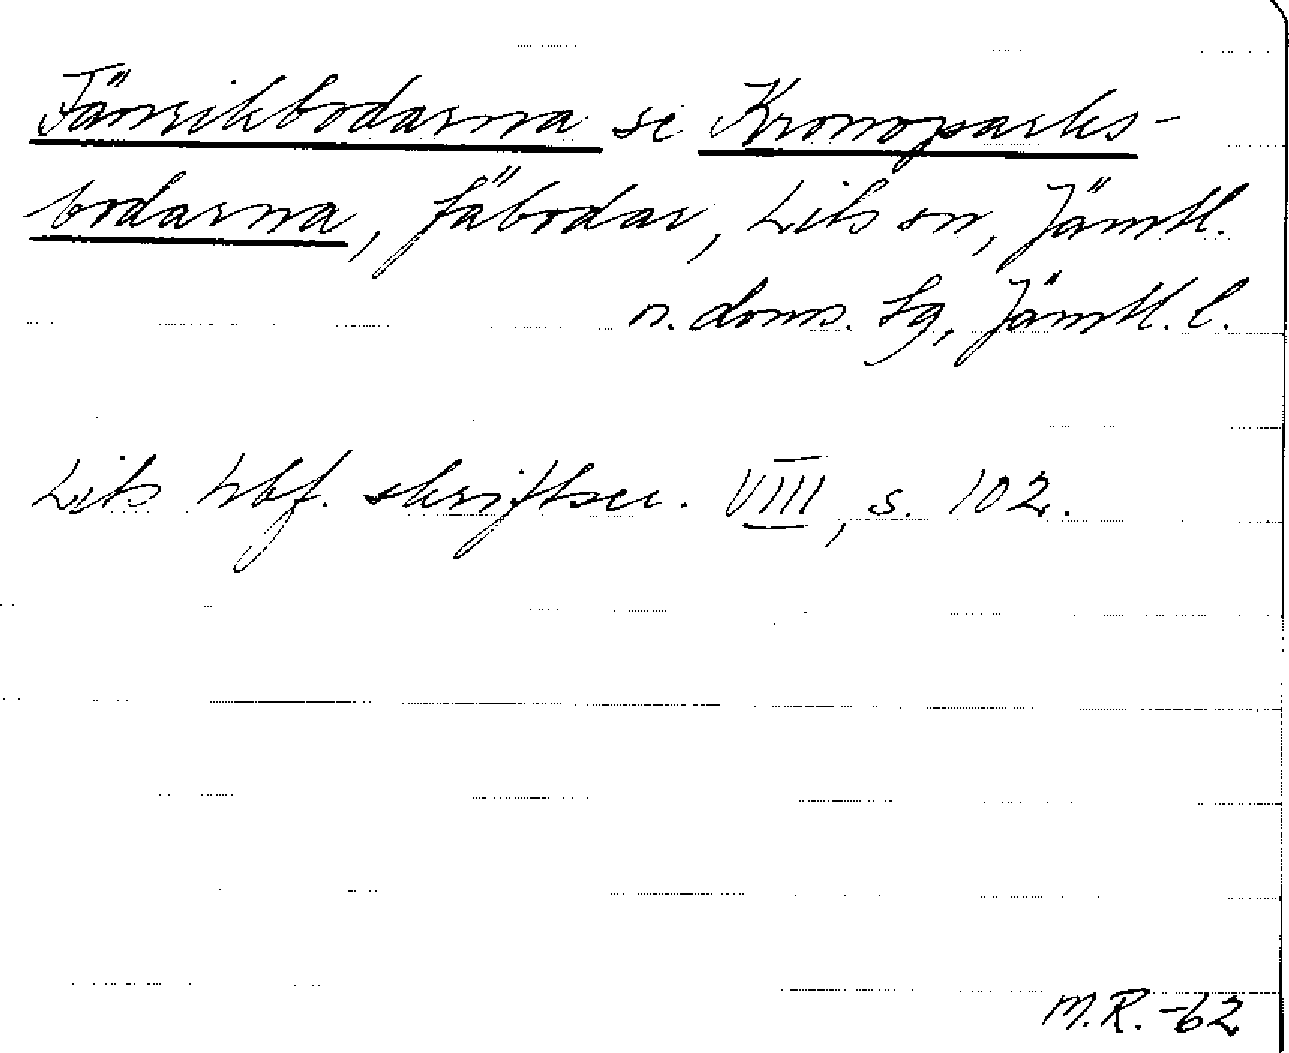 Fänrikbodarna se Kronoparks-
bodarna, fäbodar, Lits sn, Jämtl.
n. doms. lg, Jämtl. l.
Lits hbf. skriftser. VIII, s. 102.
M.R. -62